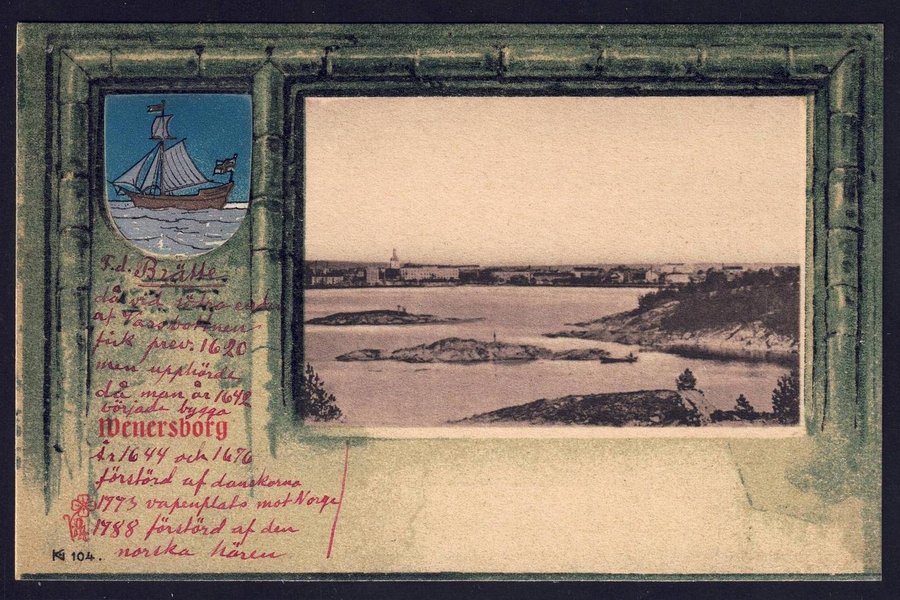 F.d. Brätte
då vid södra
af Vassbottnen
fick prev. 1620
men upphörde
då man år 1642
började bygga
Wenersborg
År 1644 och 1676
förstörd af danskarna
1773 vapenplats mot Norge
1788 förstörd af den
norska hären
104.